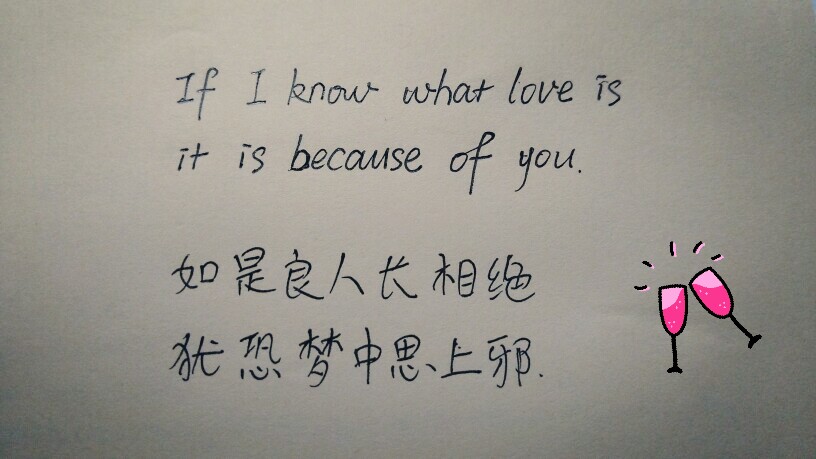 If I know what love is
it is because of you.
如是良人长相绝
犹恐梦中思上邪.